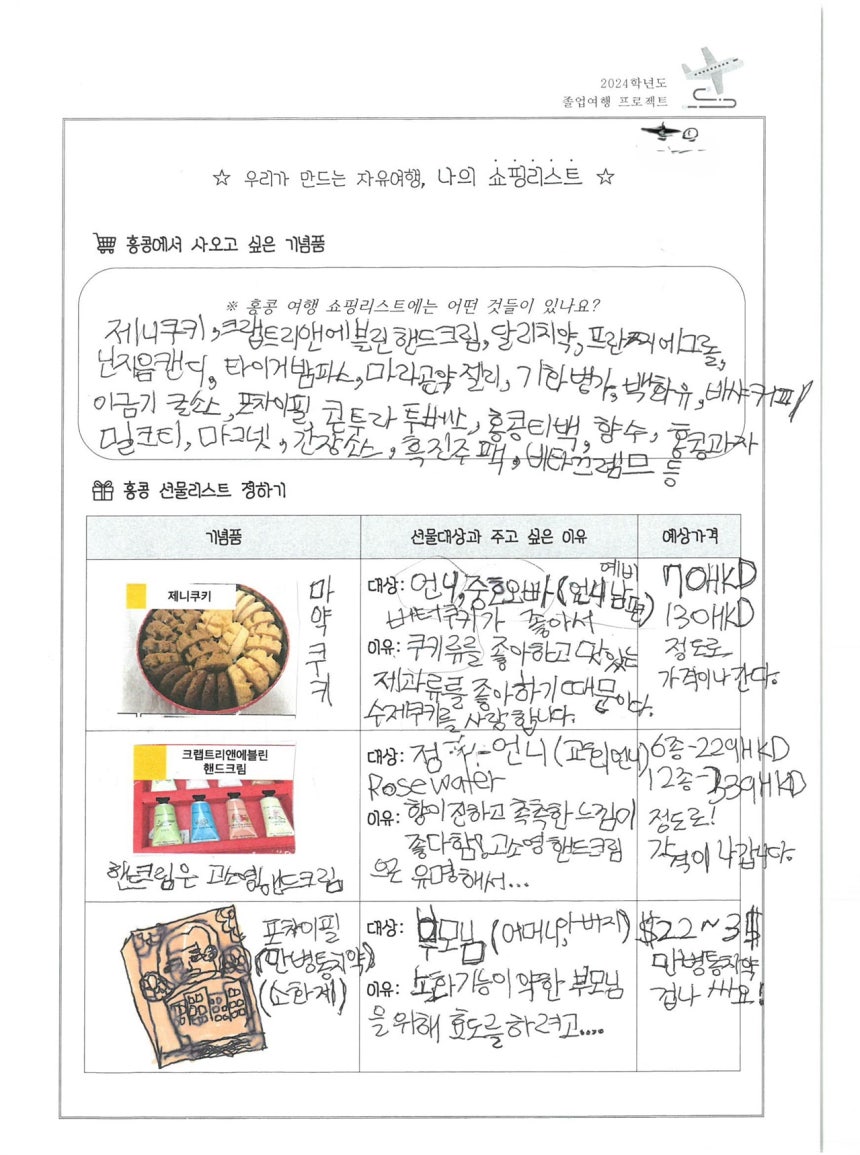 2024학년도
졸업여행 프로젝트
☆ 우리가 만드는 자유여행, 나의 쇼핑리스트 ☆
홍콩에서 사오고 싶은 기념품
※ 홍콩 여행 쇼핑리스트에는 어떤 것들이 있나요?
제니쿠키, 크랩트리앤에블린 핸드크림, 달리치약, 프란찌에그롤,
난지음캔디, 타이거밤파스, 마라곤약젤리, 기화병가, 백화유, 바샤커피
이금기 굴소스, 포차이필 콘투라투벡스, 홍콩티백, 향수, 홍콩과자
밀크티, 마그넷, 간장소스, 흑진주팩, 비타끄렘므 등
홍콩 선물리스트 정하기
기념품 선물대상과 주고 싶은 이유 예상가격
제니쿠키
마약쿠키
대상: 언니, 중호오빠 (언니 예비 남편)
버터쿠키가 좋아서
이유: 쿠키류를 좋아하고 맛있는
제과류를 좋아하기 때문이다.
수제쿠키를 사랑합니다.
70HKD
130HKD
정도로
가격이 나간다.
크랩트리앤에블린
핸드크림
핸드크림은 고소영핸드크림
대상: 정 언니 (교회언니)
Rose water
이유: 향이 진하고 촉촉한 느낌이
좋다함! 고소영 핸드크림
으로 유명해서...
6종-229HKD
12종-339HKD
정도로!
가격이 나갑니다.
포차이필
(만병통치약)
(소화제)
대상: 부모님 (어머니, 아버지)
이유: 소화기능이 약한 부모님
을 위해 효도를 하려고....
$22~3$
만병통치약
겁나 싸요!